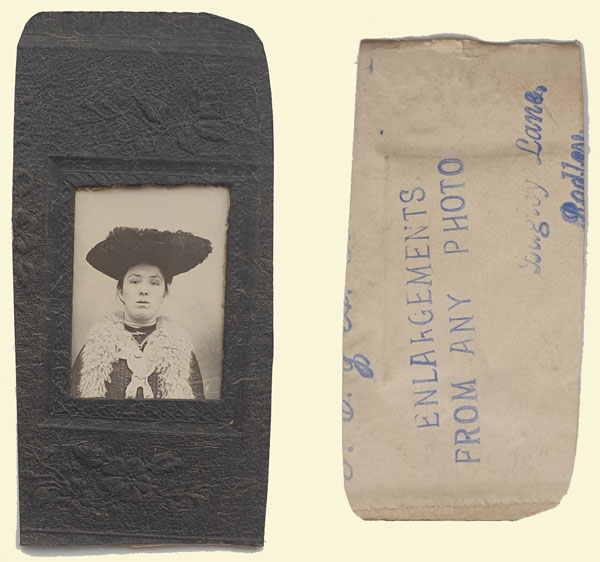 ENLARGEMENTS
FROM ANY PHOTO
Bagley Lane,
Rodley.